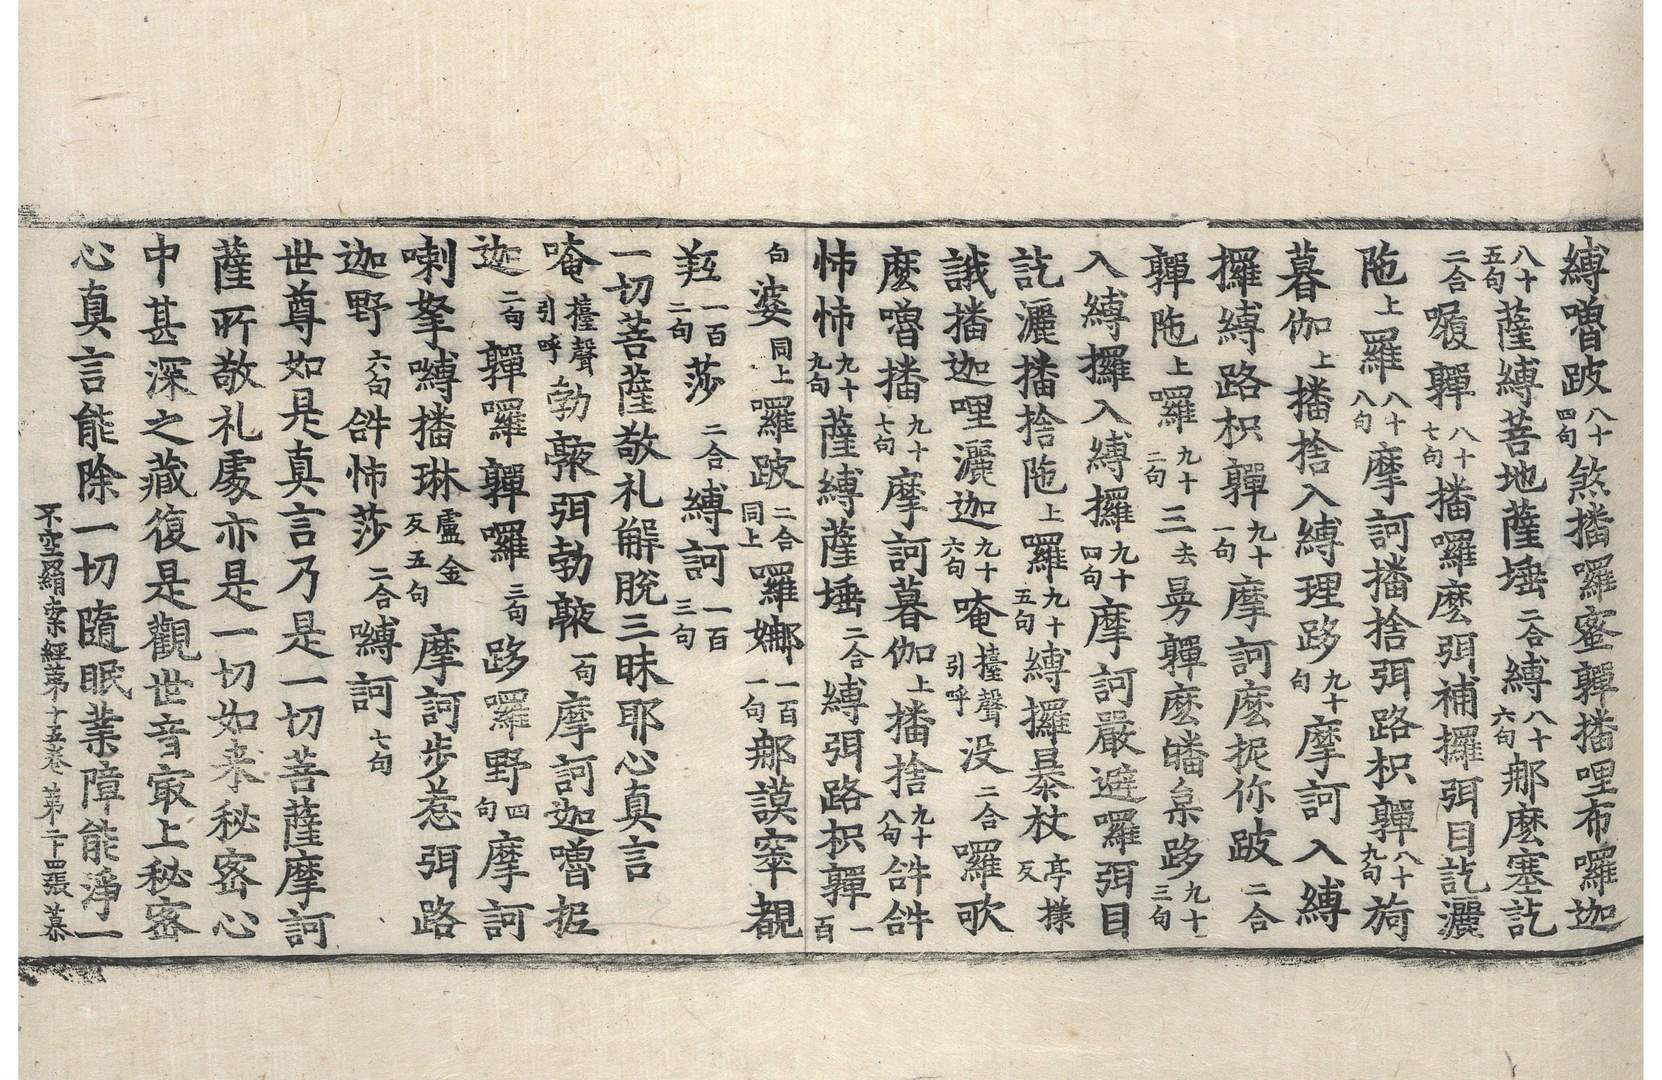 縛嚕跛八十四句煞播囉蜜鄿播哩布囉迦
八十五句薩縛菩地薩埵二合縛八十六句那麼塞訖
二合履鄿八十七句播囉麼弭補攞弭目訖灑
陁上羅八十八句摩訶播捨弭路枳鄿八十九句旖
暮伽上播捨入縛理跢九十句摩訶入縛
攞縛路枳鄿九十一句摩訶麼抳你跛二合
鄿陁上囉九十二句三去曼鄿麼皤㮈跢九十三句
入縛攞入縛攞九十四句摩訶嚴避囉弭目
訖灑播捨陁上囉九十五句縛攞暴杖亭㨾反
誐播迦哩灑迦九十六句唵擡聲引呼没二合囉歌
麼嚕播九十七句摩訶暮伽上播捨九十八句䤈䤈
怖怖九十九句薩縛薩埵二合縛弭路枳鄿一百
句婆同上囉跛二合同上囉娜一百一句那謨窣覩
羟一百二句莎二合縛訶一百三句
一切菩薩敬礼解脫三昧耶心真言
唵擡聲引呼勃䤈弭勃䤈一句摩訶迦嚕抳
迦二句鄿囉鄿囉三句跢囉野四句摩訶
喇拏嚩播琳盧金反五句摩訶步惹弭路
迦野六句䤈怖莎二合嚩訶七句
世尊如是真言乃是一切菩薩摩訶
薩所敬礼處亦是一切如来秘密心
中甚深之藏復是觀世音㝡上秘密
心真言能除一切隨眠業障能淨一
不空羂索經第十五卷 第二十四張 慕